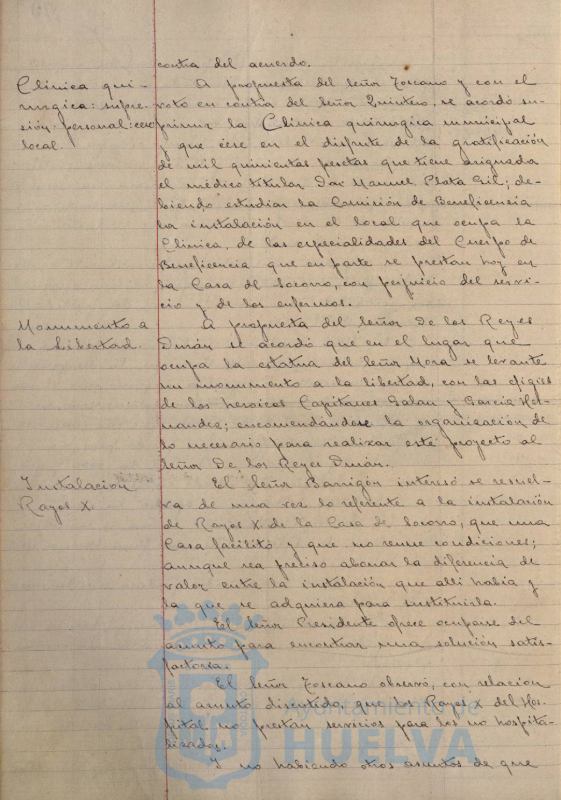 contra del acuerdo.
Clínica qui-
rúrgica: supre-
sión: personal: ceso
local.
A propuesta del Señor Toscano y con el
voto en contra del Señor Quintero, se acordó su-
primir la Clínica quirúrgica municipal
y que cese en el disfrute de la gratificación
de mil quinientas pesetas que tiene asignada
el médico titular Don Manuel Plata Gil; de-
biendo estudiar la Comisión de Beneficencia
la instalación en el local que ocupa la
Clínica, de las especialidades del Cuerpo de
Beneficencia que en parte se prestan hoy en
la Casa de Socorro, con perjuicio del servi-
cio y de los enfermos.
Monumento a
la Libertad.
A propuesta del Señor De los Reyes
Durán se acordó que en el lugar que
ocupa la estatua del Señor Mora se levante
un monumento a la libertad, con las efigies
de los heroicos Capitanes Galan y García Her-
nandez; encomendándose la organización de
lo necesario para realizar este proyecto al
Señor De los Reyes Durán.
Instalación
Rayos X.
El Señor Barrigón interesó se resuel-
va de una vez lo referente a la instalación
de Rayos X. de la Casa de Socorro, que una
Casa facilitó y que no reune condiciones;
aunque sea preciso abonar la diferencia de
valor entre la instalación que allí había y
la que se adquiera para sustituirla.
El Señor Presidente ofrece ocuparse del
asunto para encontrar una solución satis-
factoria.
El Señor Toscano observó, con relación
al asunto discutido, que los Rayos X del Hos-
pital no prestan servicios para los no hospita-
lizados.
Y no habiendo otros asuntos de que
Ayuntamiento de
HUELVA